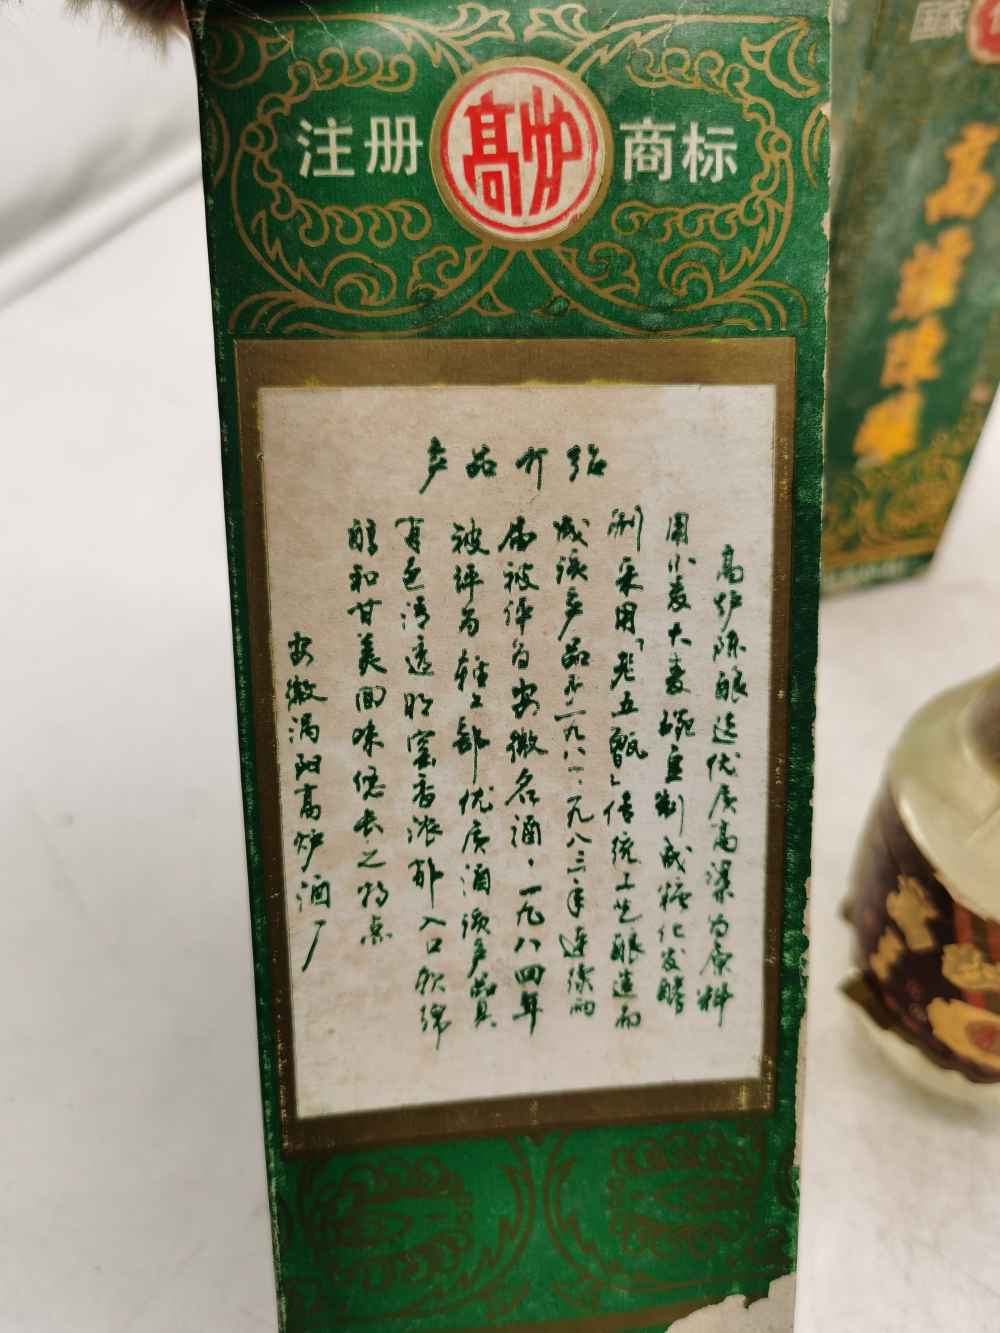 注册 高炉 商标
产品介绍
高炉陈酿选优质高粱为原料
用小麦大麦豌豆制成糖化发酵
剂采用「老五甑」传统工艺酿造而
成该产品于一九八一、一九八三年连续两
届被评为安徽名酒，一九八四年
被评为轻工部优质酒该产品具
有色清透明窖香浓郁入口软绵
醇和甘美回味悠长之特点
安徽涡阳高炉酒厂
国家
高爐陳釀